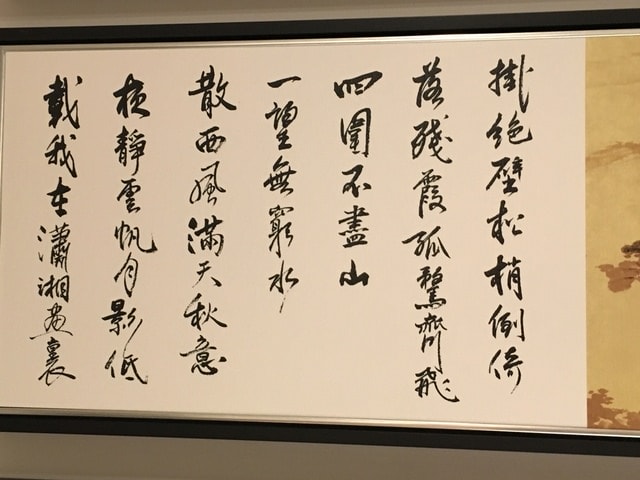 掛絶壁松梢倒倚
落殘霞孤鶩齊飛
四圍不盡山
一望無窮水
散西風滿天秋意
夜靜雲帆月影低
載我在瀟湘畫裏